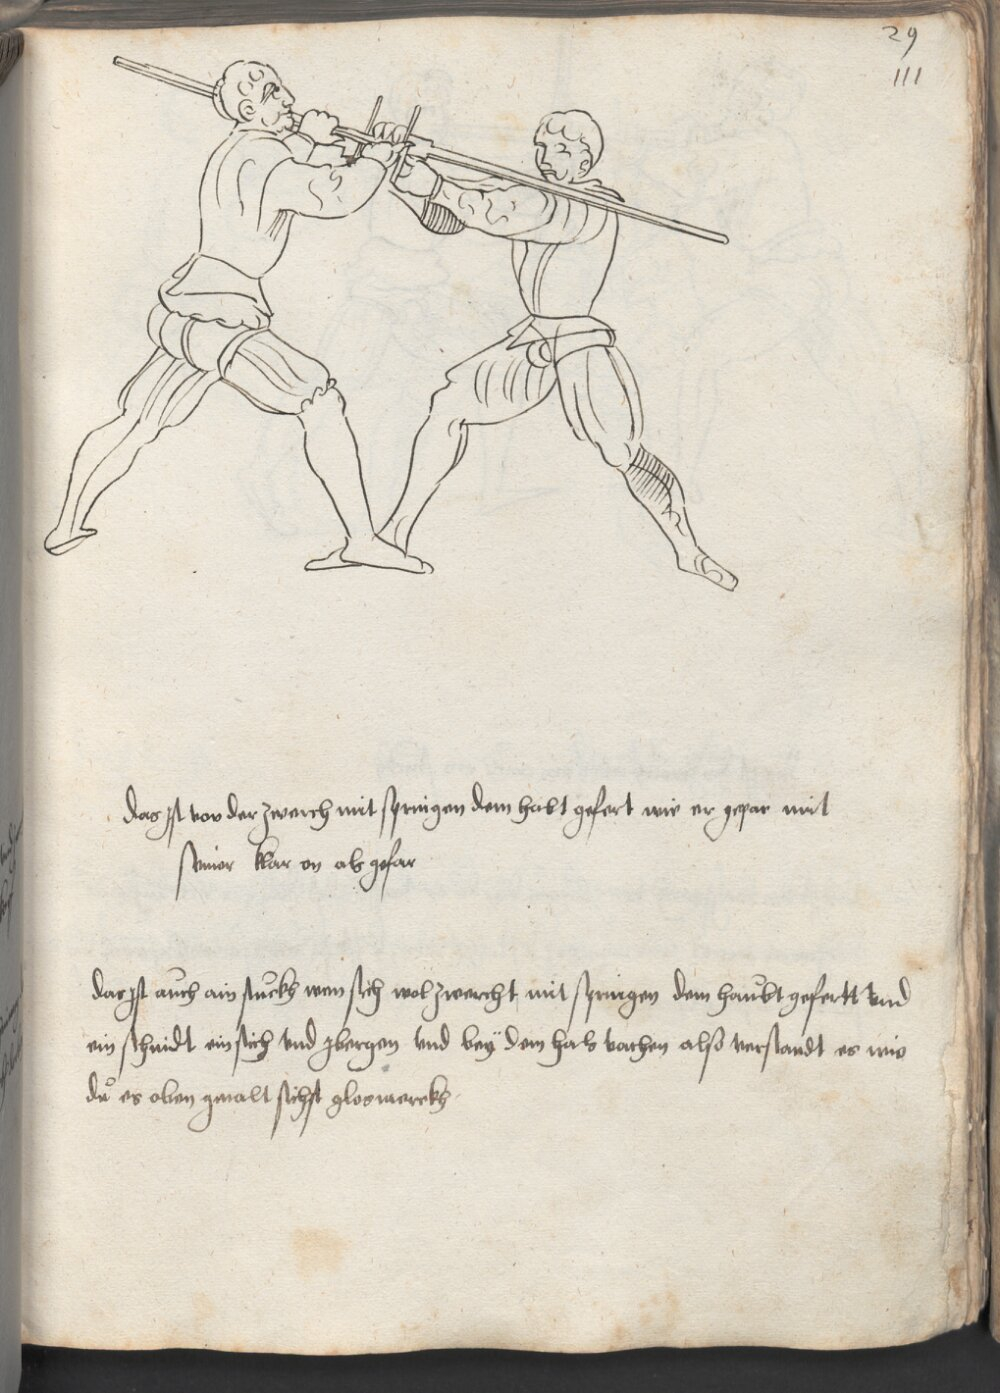 29
111
das ist von der zwerch mit springen dem habt gefert wie er gepar mit
seiner War on als gefar
das ist auch ain stuckh wen sich wol zwercht mit springen dem haubt gefertt vnd
ein schnidt ein sich vnd zbergen vnd bey dem hals vachen also verstandt es wie
du es oben gmalt sichst glosmerckh